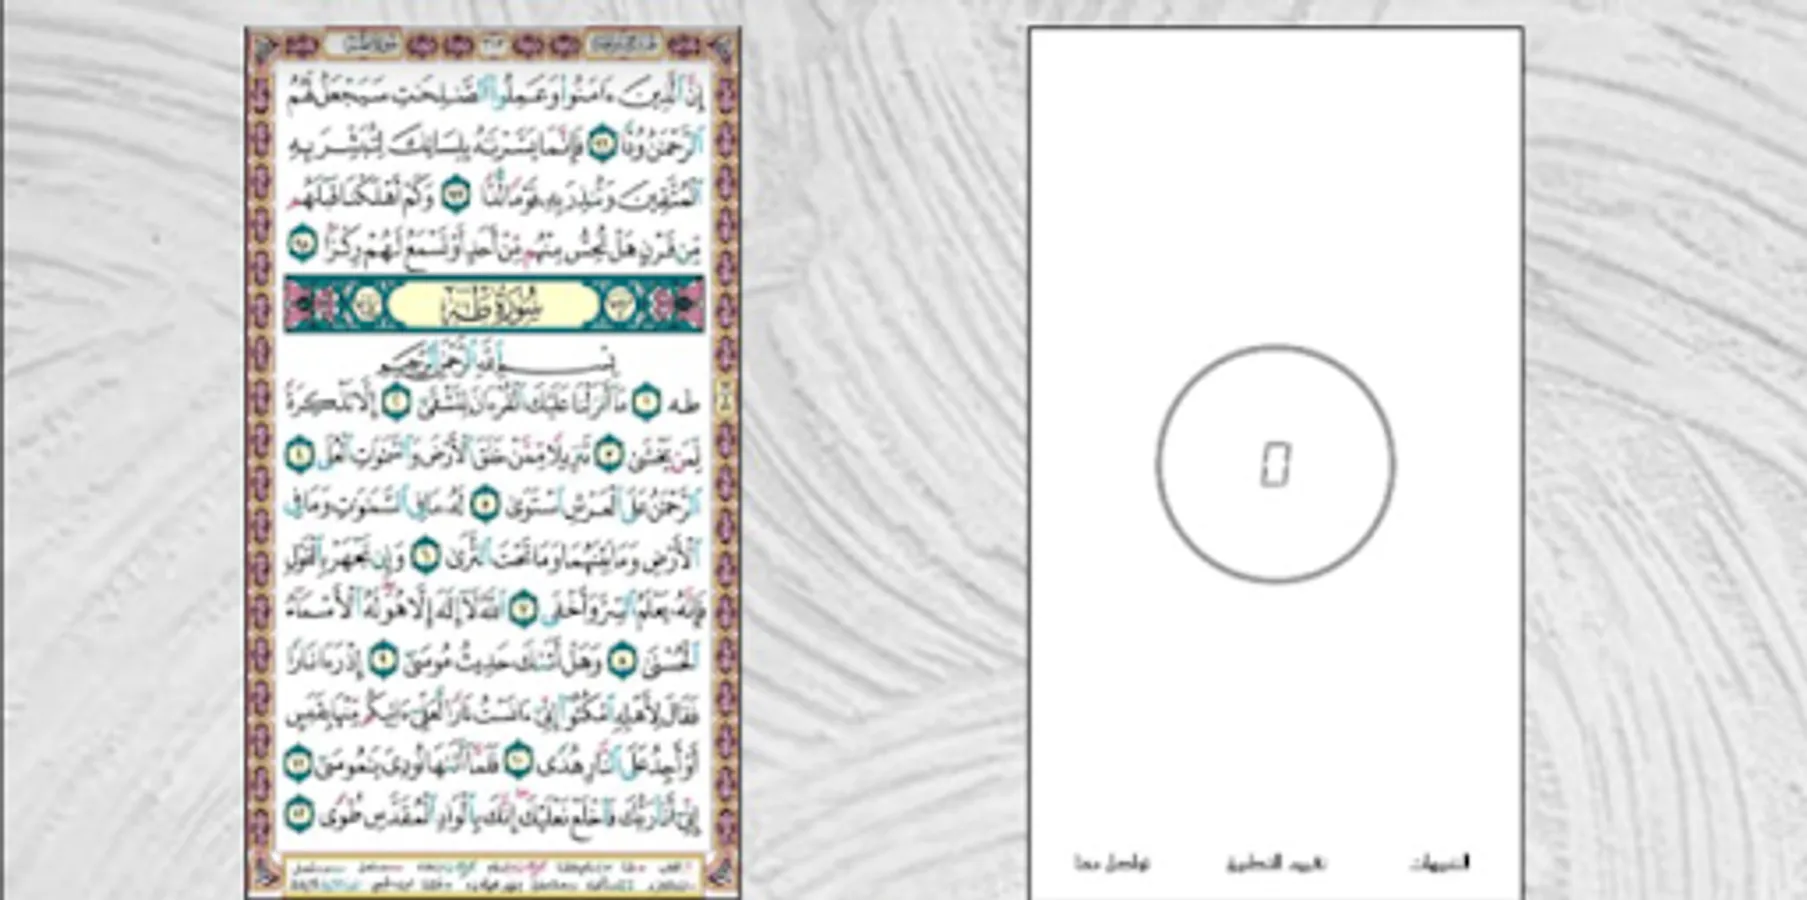 سُورَةُ مَرْيَم
٣١٢
الجزء السادس عشر
إِنَّ ٱلَّذِينَ ءَامَنُوا۟ وَعَمِلُوا۟ ٱلصَّٰلِحَٰتِ سَيَجْعَلُ لَهُمُ
ٱلرَّحْمَٰنُ وُدًّا ٩٦ فَإِنَّمَا يَسَّرْنَٰهُ بِلِسَانِكَ لِتُبَشِّرَ بِهِ
ٱلْمُتَّقِينَ وَتُنذِرَ بِهِۦ قَوْمًا لُّدًّا ٩٧ وَكَمْ أَهْلَكْنَا قَبْلَهُم
مِّن قَرْنٍ هَلْ تُحِسُّ مِنْهُم مِّنْ أَحَدٍ أَوْ تَسْمَعُ لَهُمْ رِكْزًۢا ٩٨
سُورَةُ طه
بِسْمِ ٱللَّهِ ٱلرَّحْمَٰنِ ٱلرَّحِيمِ
طه ١ مَآ أَنزَلْنَا عَلَيْكَ ٱلْقُرْءَانَ لِتَشْقَىٰٓ ٢ إِلَّا تَذْكِرَةً
لِّمَن يَخْشَىٰ ٣ تَنزِيلًا مِّمَّنْ خَلَقَ ٱلْأَرْضَ وَٱلسَّمَٰوَٰتِ ٱلْعُلَى ٤
ٱلرَّحْمَٰنُ عَلَى ٱلْعَرْشِ ٱسْتَوَىٰ ٥ لَهُۥ مَا فِى ٱلسَّمَٰوَٰتِ وَمَا فِى
ٱلْأَرْضِ وَمَا بَيْنَهُمَا وَمَا تَحْتَ ٱلثَّرَىٰ ٦ وَإِن تَجْهَرْ بِٱلْقَوْلِ
فَإِنَّهُۥ يَعْلَمُ ٱلسِّرَّ وَأَخْفَى ٧ ٱللَّهُ لَآ إِلَٰهَ إِلَّا هُوَ لَهُ ٱلْأَسْمَآءُ
ٱلْحُسْنَىٰ ٨ وَهَلْ أَتَىٰكَ حَدِيثُ مُوسَىٰٓ ٩ إِذْ رَءَا نَارًا
فَقَالَ لِأَهْلِهِ ٱمْكُثُوٓا۟ إِنِّىٓ ءَانَسْتُ نَارًا لَّعَلِّىٓ ءَاتِيكُم مِّنْهَا بِقَبَسٍ
أَوْ أَجِدُ عَلَى ٱلنَّارِ هُدًى ١٠ فَلَمَّآ أَتَىٰهَا نُودِىَ يَٰمُوسَىٰٓ ١١
إِنِّىٓ أَنَا۠ رَبُّكَ فَٱخْلَعْ نَعْلَيْكَ إِنَّكَ بِٱلْوَادِ ٱلْمُقَدَّسِ طُوًى ١٢
0
التنبيهات
تقييم التطبيق
تواصل معنا